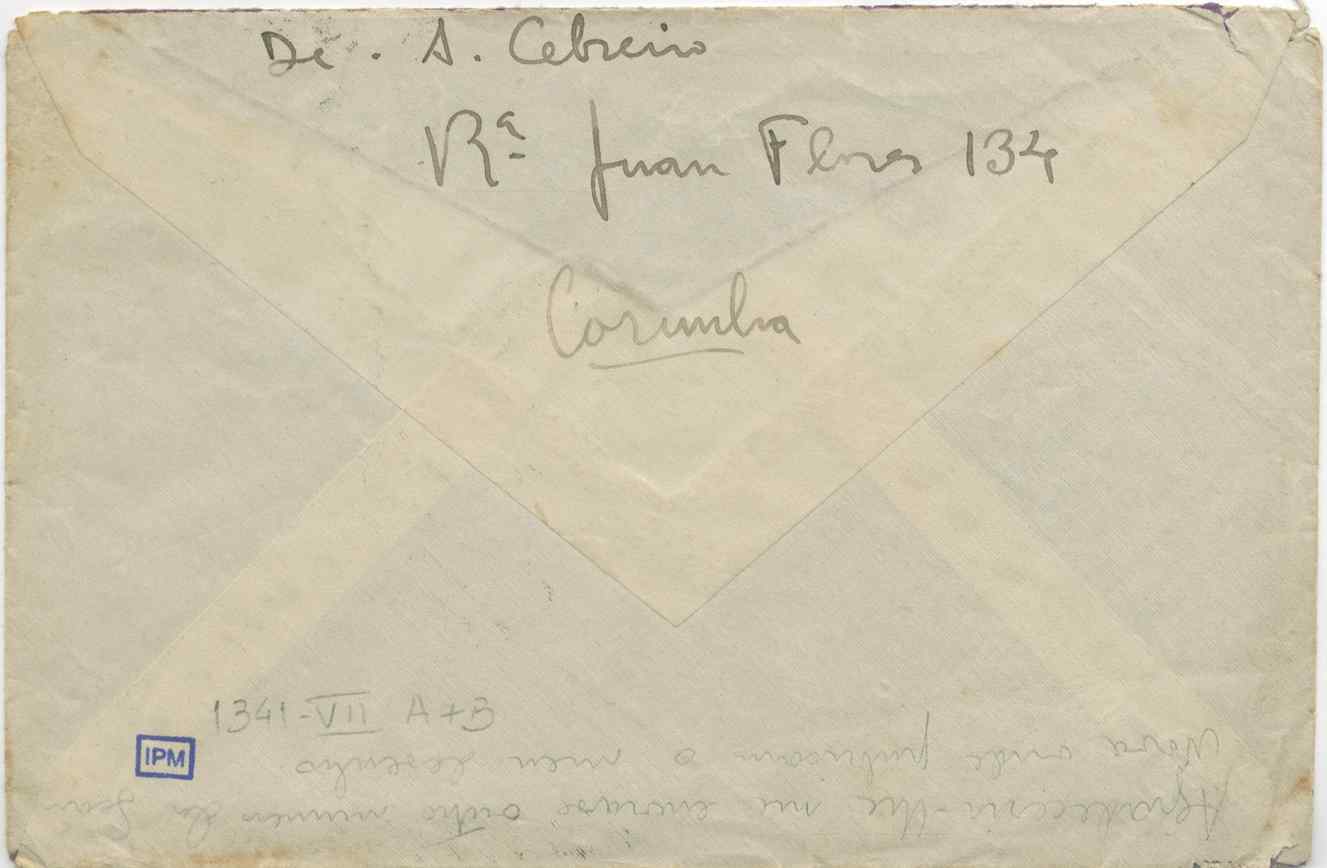 De. A. Cebreiro
Rª Juan Flores 134
Corunha
1341-VII A+B
IPM
Agradeceria-lhe me enviase outro numero da
Nova onde publicam o meu desenho